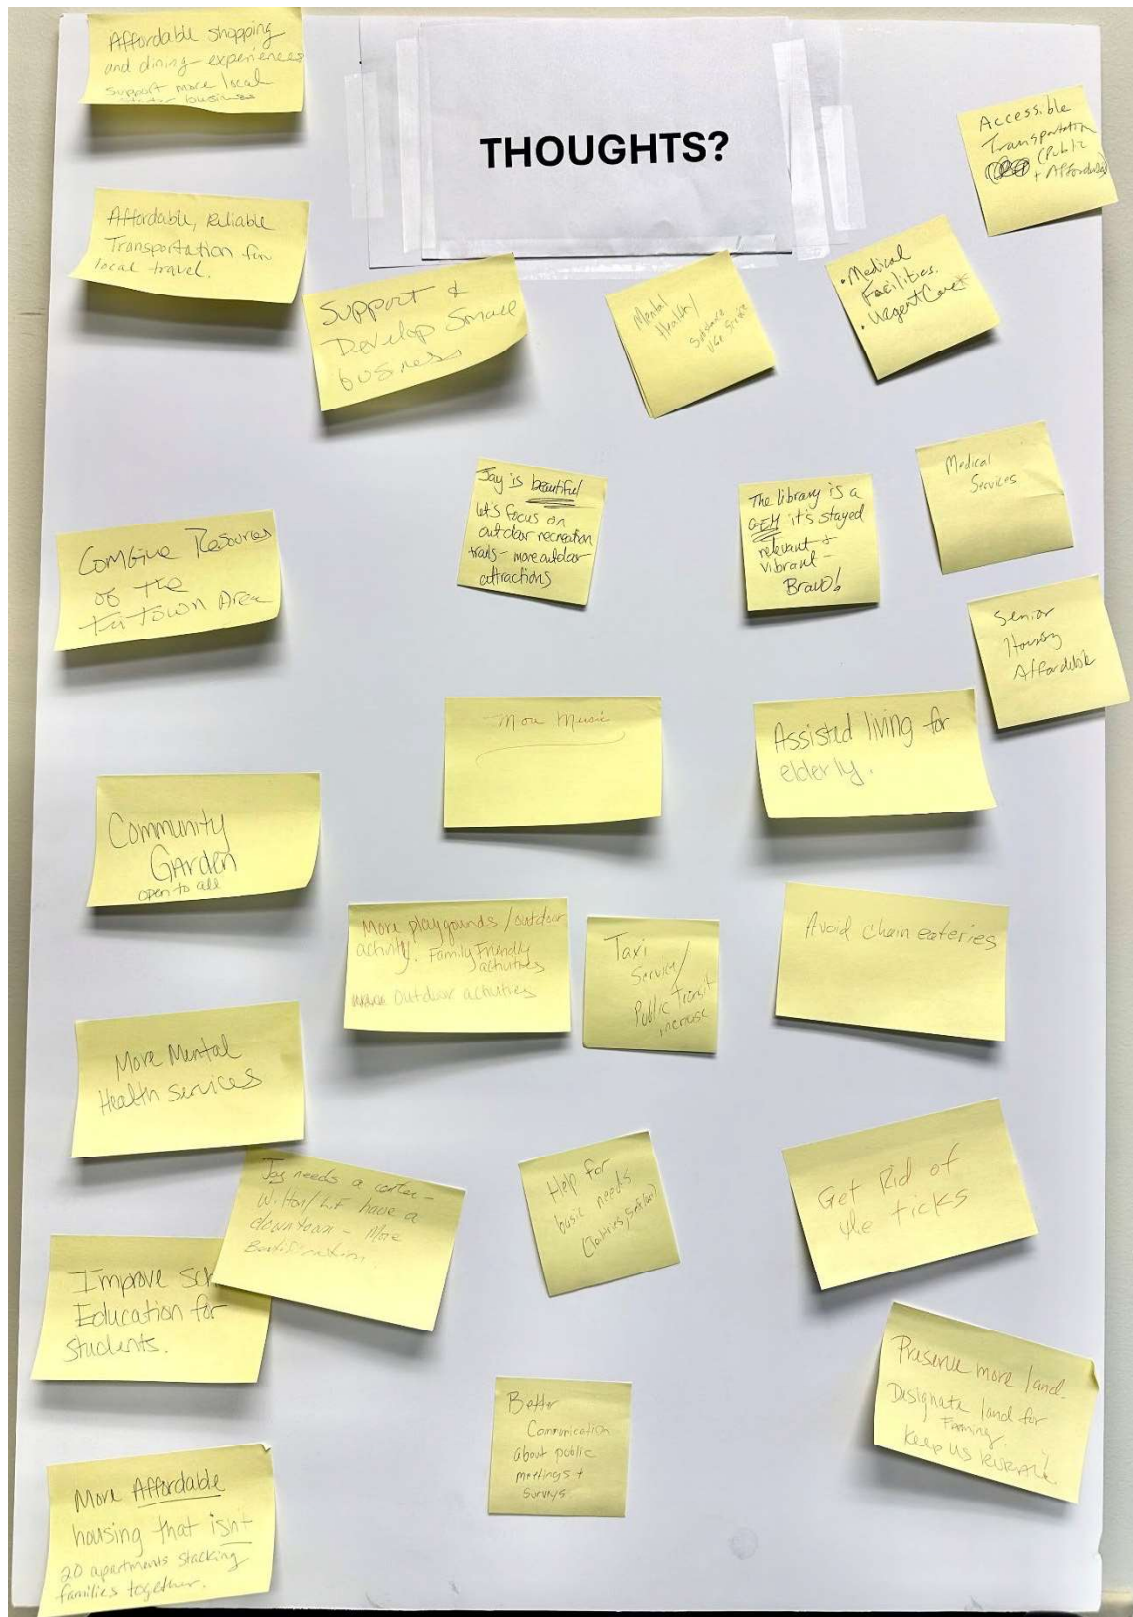 THOUGHTS?
Affordable shopping
and dining - experiences
support more local
business
Accessible
Transportation
(Public
+ Affordable)
Affordable, Reliable
Transportation for
local travel.
Support &
Develop Small
business
Mental
Health/
Substance
Use Service
• Medical
Facilities.
• Urgent Care*
Jay is beautiful
let's focus on
outdoor recreation
trails - more outdoor
attractions
The library is a
GEM it's stayed
relevant +
vibrant -
Bravo!
Medical
Services
Combine Resources
of the
Tri Town Area
Senior
Housing
Affordable
More Music
Assisted living for
elderly.
Community
Garden
open to all
More playgrounds / outdoor
activity. Family Friendly
activities
outdoor activities
Taxi
Service/
Public Transit
increase
Avoid chain eateries
More Mental
Health services
Jay needs a center -
Wilton/L.F. have a
downtown - More
Beautification.
Help for
basic needs
Get Rid of
the ticks
Improve Sch
Education for
students.
Preserve more land.
Designate land for
Farming.
Keep us RURAL!
Better
Communication
about public
meetings +
surveys
More Affordable
housing that isn't
20 apartments stacking
families together.